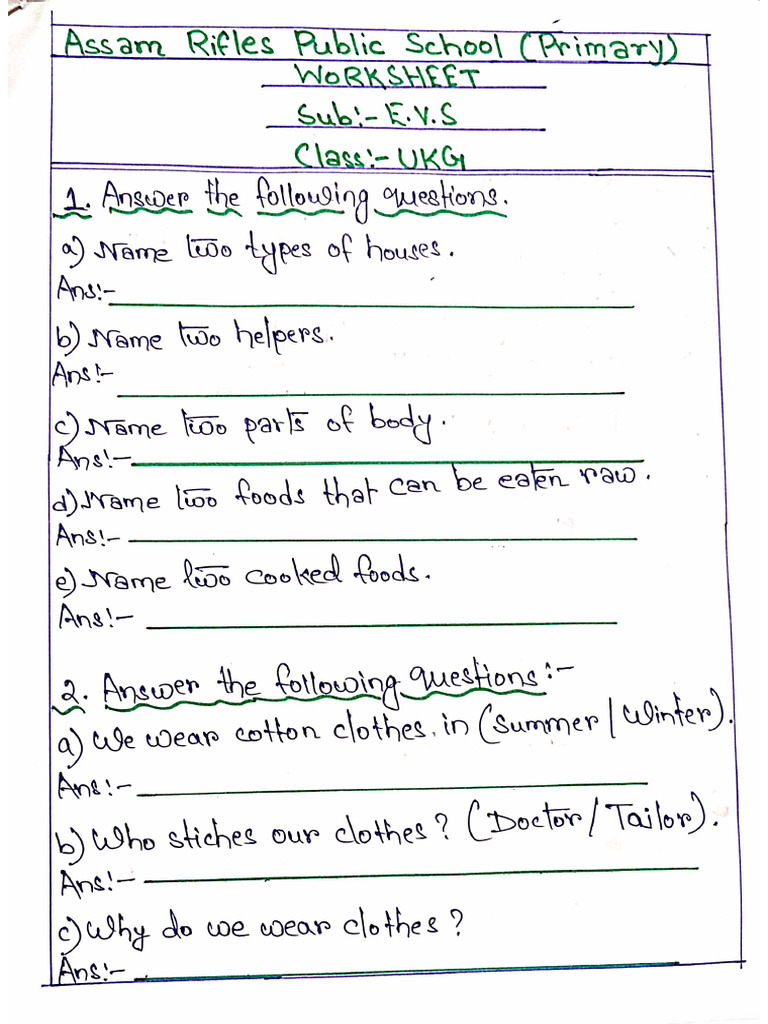 Assam Rifles Public School (Primary)
WORKSHEET
Sub:- E.V.S
Class:- UKG
1. Answer the following questions.
a) Name two types of houses.
Ans:-
b) Name two helpers.
Ans:-
c) Name two parts of body.
Ans:-
d) Name two foods that can be eaten raw.
Ans:-
e) Name two cooked foods.
Ans:-
2. Answer the following questions:-
a) We wear cotton clothes. in (Summer / Winter).
Ans:-
b) Who stiches our clothes? (Doctor / Tailor).
Ans:-
c) Why do we wear clothes?
Ans:-